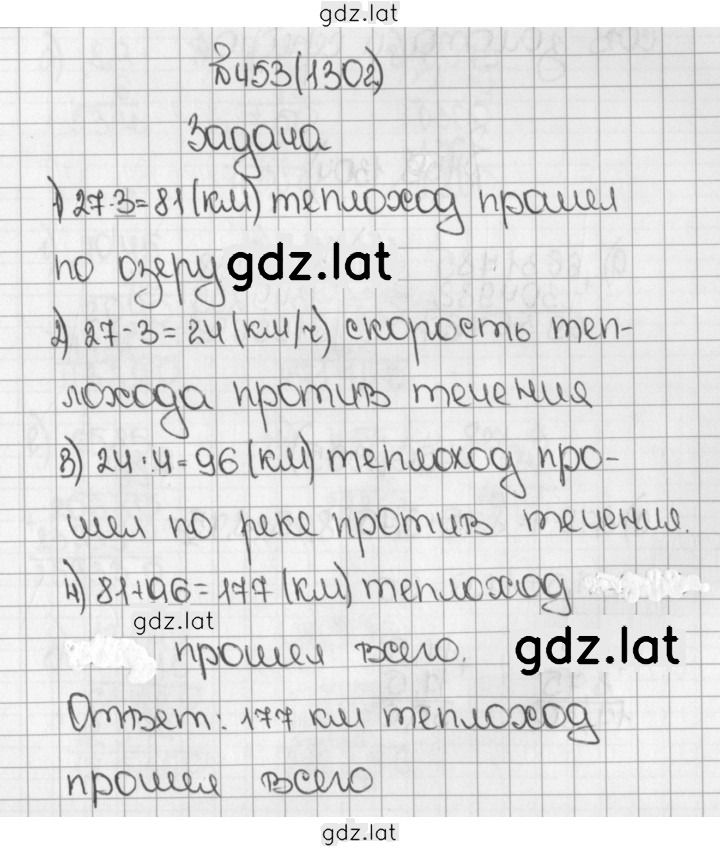 gdz.lat
№453(1302)
Задача
1) 27·3=81 (км) теплоход прошел
по озеру gdz.lat
2) 27-3=24 (км/ч) скорость теп-
лохода против течения
3) 24·4=96 (км) теплоход про-
шел по реке против течения.
4) 81+96=177 (км) теплоход
gdz.lat
прошел всего. gdz.lat
Ответ: 177 км теплоход
прошел всего
gdz.lat